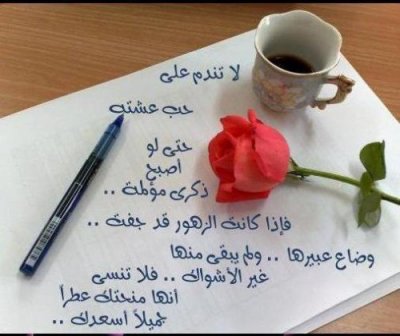 لا تندم على
حب عشته
حتى لو
اصبح
ذكرى مؤلمة ..
فإذا كانت الزهور قد جفت ..
وضاع عبيرها .. ولم يبقى منها
غير الأشواك .. فلا تنسى
أنها منحتك عطراً
جميلاً اسعدك ..